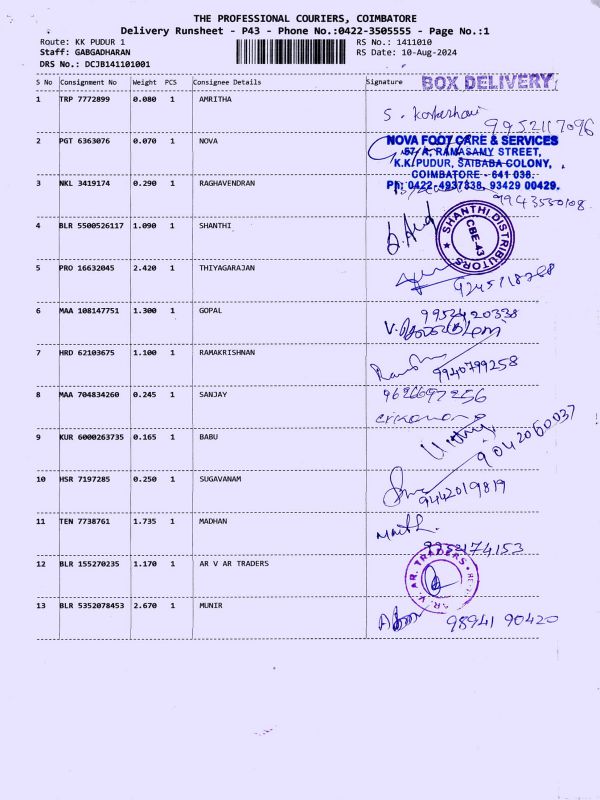 THE PROFESSIONAL COURIERS, COIMBATORE
Delivery Runsheet - P43 - Phone No.:0422-3505555 - Page No.:1
Route: KK PUDUR 1 RS No.: 1411010
Staff: GABGADHARAN RS Date: 10-Aug-2024
DRS No.: DCJB141101001
S No Consignment No Weight PCS Consignee Details Signature BOX DELIVERY
1 TRP 7772899 0.080 1 AMRITHA
9952117096
2 PGT 6363076 0.070 1 NOVA
NOVA FOOT CARE & SERVICES
57/A, RAMASAMY STREET,
K.K.PUDUR, SAIBABA COLONY,
COIMBATORE - 641 038.
Ph: 0422-4937838, 93429 00429.
3 NKL 3419174 0.290 1 RAGHAVENDRAN
4 BLR 5500526117 1.090 1 SHANTHI
SHANTHI DISTRIBUTORS
CBE-43
5 PRO 16632045 2.420 1 THIYAGARAJAN
6 MAA 108147751 1.300 1 GOPAL
9952420338
7 HRD 62103675 1.100 1 RAMAKRISHNAN
9940799258
8 MAA 704834260 0.245 1 SANJAY
9626697256
9 KUR 6000263735 0.165 1 BABU
9042060037
10 HSR 7197285 0.250 1 SUGAVANAM
9442019819
11 TEN 7738761 1.735 1 MADHAN
12 BLR 155270235 1.170 1 AR V AR TRADERS
AR. V. AR. TRADERS
13 BLR 5352078453 2.670 1 MUNIR
98941 90420